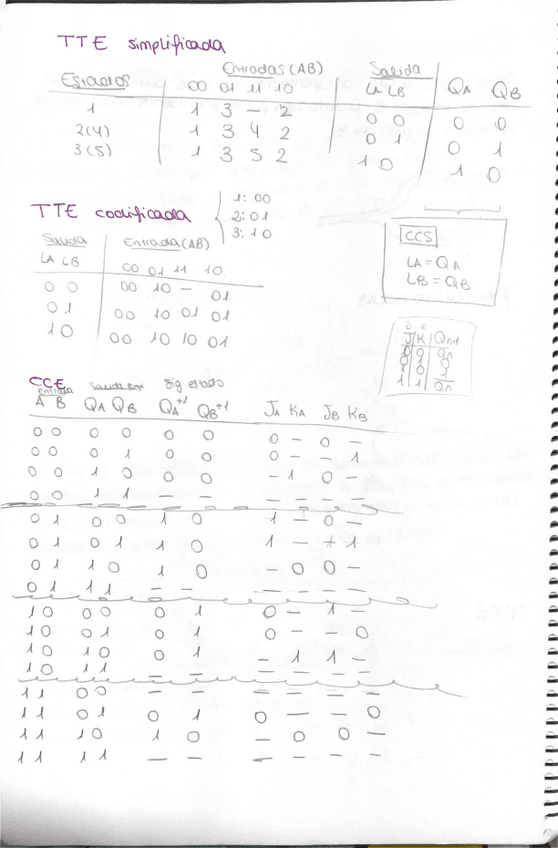 TTE simplificada
Estados Entradas (AB) Salida
00 01 11 10 LA LB QA QB
1 1 3 - 2 0 0 0 0
2(4) 1 3 4 2 0 1 0 1
3(5) 1 3 5 2 1 0 1 0
TTE codificada
1: 00
2: 01
3: 10
Salida Entrada (AB)
LA LB 00 01 11 10
0 0 00 10 - 01
0 1 00 10 01 01
1 0 00 10 10 01
CCS
LA = QA
LB = QB
J K Qn+1
0 0 Qn
0 1 0
1 0 1
1 1 Qn
CCE
Entrada Sig estado
A B QA QB QA+1 QB+1 JA KA JB KB
0 0 0 0 0 0 0 - 0 -
0 0 0 1 0 0 0 - - 1
0 0 1 0 0 0 - 1 0 -
0 0 1 1 - - - - - -
0 1 0 0 1 0 1 - 0 -
0 1 0 1 1 0 1 - - 1
0 1 1 0 1 0 - 0 0 -
0 1 1 1 - - - - - -
1 0 0 0 0 1 0 - 1 -
1 0 0 1 0 1 0 - - 0
1 0 1 0 0 1 - 1 1 -
1 0 1 1 - - - - - -
1 1 0 0 - - - - - -
1 1 0 1 0 1 0 - - 0
1 1 1 0 1 0 - 0 0 -
1 1 1 1 - - - - - -